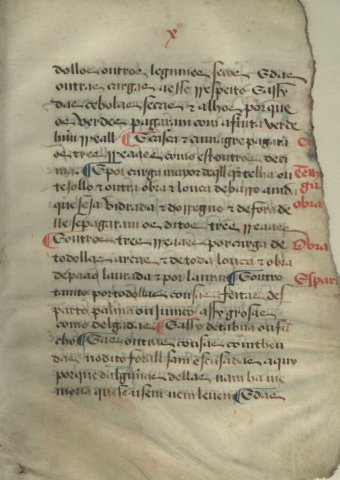 x
dollos outros legumes secos E das
outras cargas a esse rrespeito E assy
das cebolas secas & alhos por que
os verdes pagaram com a fruta verde
hũu rreall E cusca & cumagre pagara
os tres rreaaes como estoutros de ci
ma E por carga mayor de qll qr telha ou
tejollo & outra obra & louça de barro ainda
que seja vidrada & do rregno & de fora de
lle se pagaram os ditos tres rreaaes
E outros tres rreaaes por carga de
todallas arcas & de toda louça & obra
de paao laurada & por laurar E outro
tanto por todallas cousas feitas des
parto palma ou junco assy grosas
como delgadas E assy de tabua ou fu
cho E as outras cousas contheu
das no dito forall sam escusadas aquy
por que dalguũas dellas nam ha me
moria que se usem nem leuem E das
Telha
obra
Obra
Espar